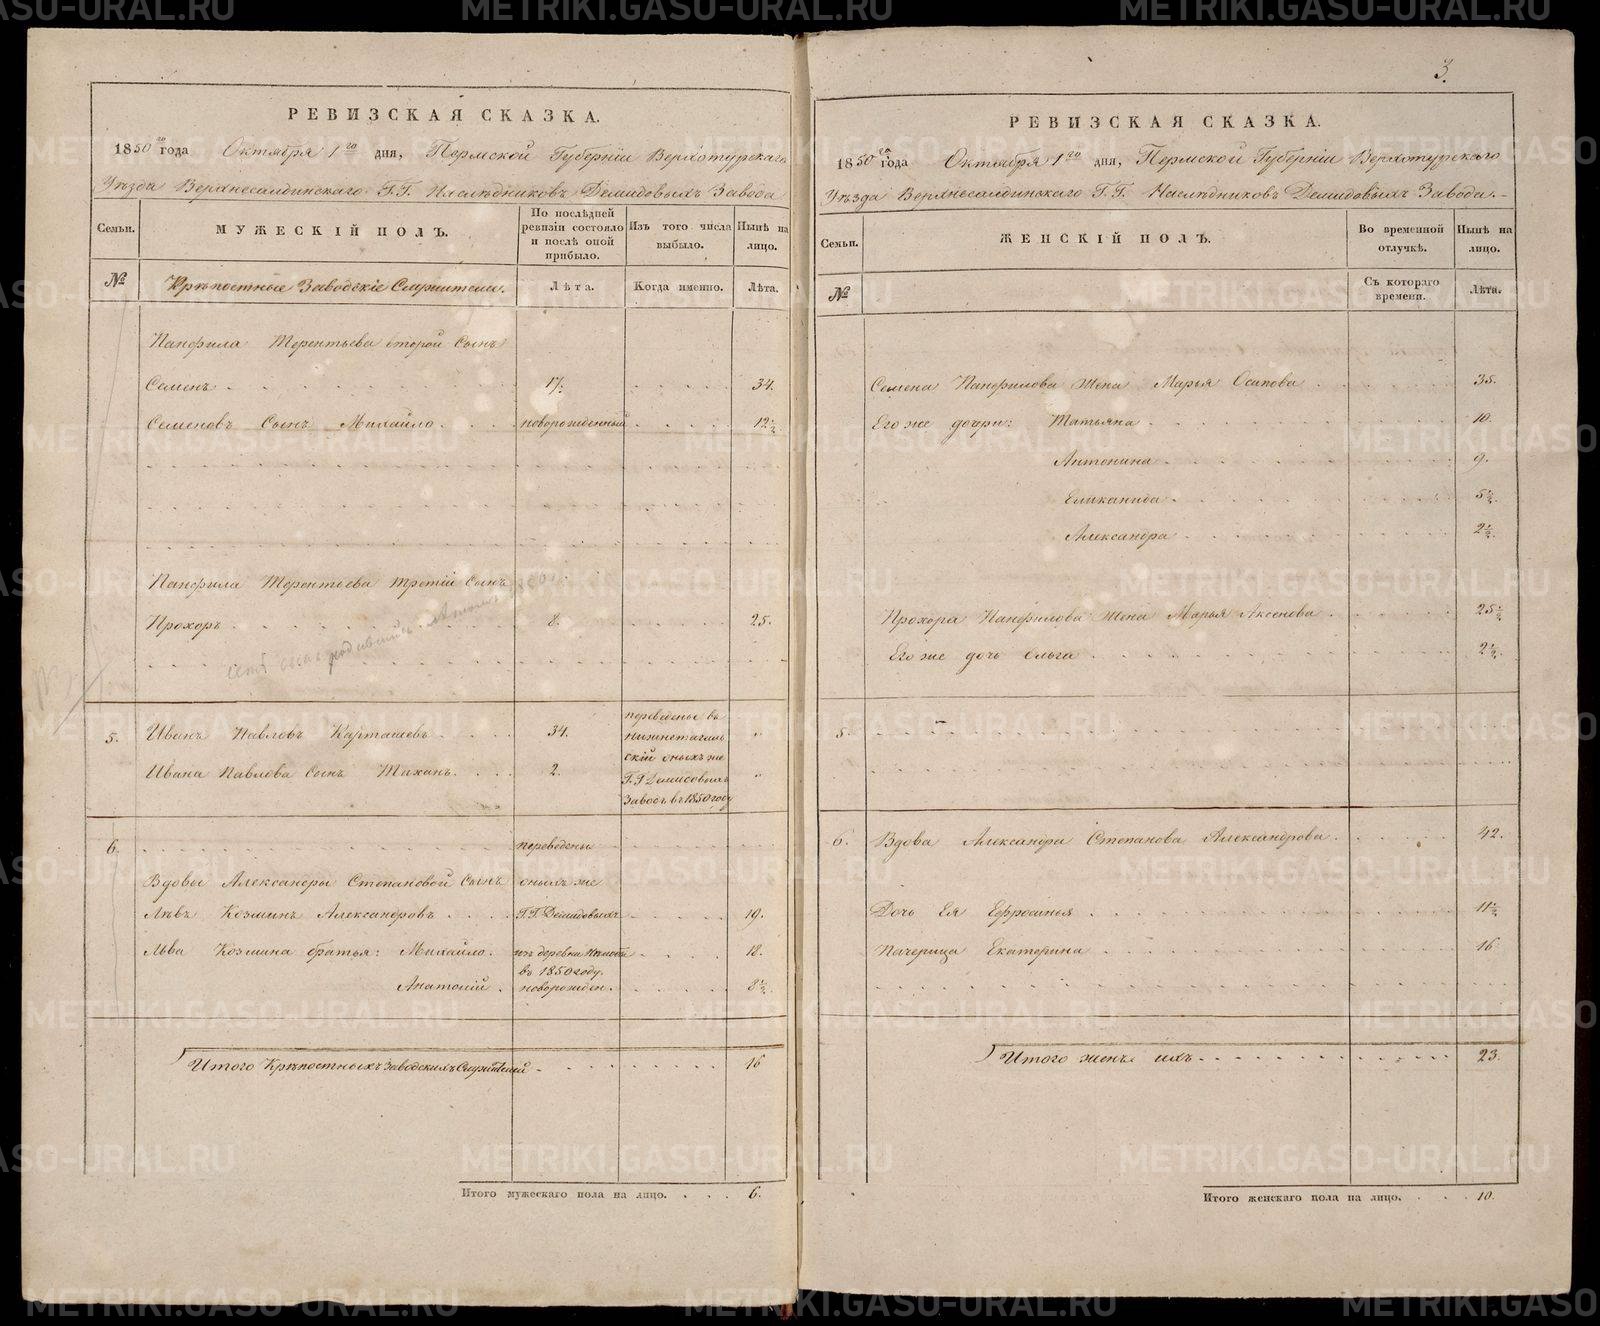 3.
РЕВИЗСКАЯ СКАЗКА.
1850го года Октября 1го дня, Пермской Губерніи Верхотурскаго
Уѣзда Верхнесалдинскаго Г.Г. Наслѣдниковъ Демидовыхъ Завода
Семьи. МУЖЕСКІЙ ПОЛЪ. По послѣдней ревизіи состояло и послѣ оной прибыло. Изъ того числа выбыло. Нынѣ на лицо.
№ Крѣпостные Заводскіе Служители. Лѣта. Когда именно. Лѣта.
Панфила Терентьева второй Сынъ
Семенъ 17. 34.
Семеновъ Сынъ Михайло новорожденный 12½
Панфила Терентьева третій Сынъ
Прохоръ 8. 25.
родившійся
5. Иванъ Павловъ Карташевъ 34. переведены въ
Нижнетагиль
скій оныхъ же
Ивана Павлова Сынъ 2. Г.Г. Демидовыхъ
Заводъ въ 1850 году
6. переведены
Вдовы Александры Степановой Сынъ оныхъ же
Лѣвъ Козминъ Александровъ Г.Г. Демидовыхъ 19.
Льва Козмина братья: Михайло изъ деревни 18.
въ 1850 году.
Анатолій новорожден. 8½
Итого Крѣпостныхъ Заводскихъ Служителей 16
Итого мужескаго пола на лицо. 6.
РЕВИЗСКАЯ СКАЗКА.
1850го года Октября 1го дня, Пермской Губерніи Верхотурскаго
Уѣзда Верхнесалдинскаго Г.Г. Наслѣдниковъ Демидовыхъ Завода.
Семьи. ЖЕНСКІЙ ПОЛЪ. Во временной отлучкѣ. Нынѣ на лицо.
№ Съ котораго времени. Лѣта.
Семена Панфилова Жена Марья Осипова 35.
Его же дочери: Татьяна 10.
Антонина 9.
Еликанида 5½
Александра 2½
Прохора Панфилова Жена Марья Аксенова 25½
Его же дочь Ольга 2½
5
6. Вдова Александра Степанова Александрова 42.
Дочь Ея Ефросинья 11½
Пачерица Екатерина 16
Итого женъ ихъ 23.
Итого женскаго пола на лицо. 10.
METRIKI.GASO-URAL.RU